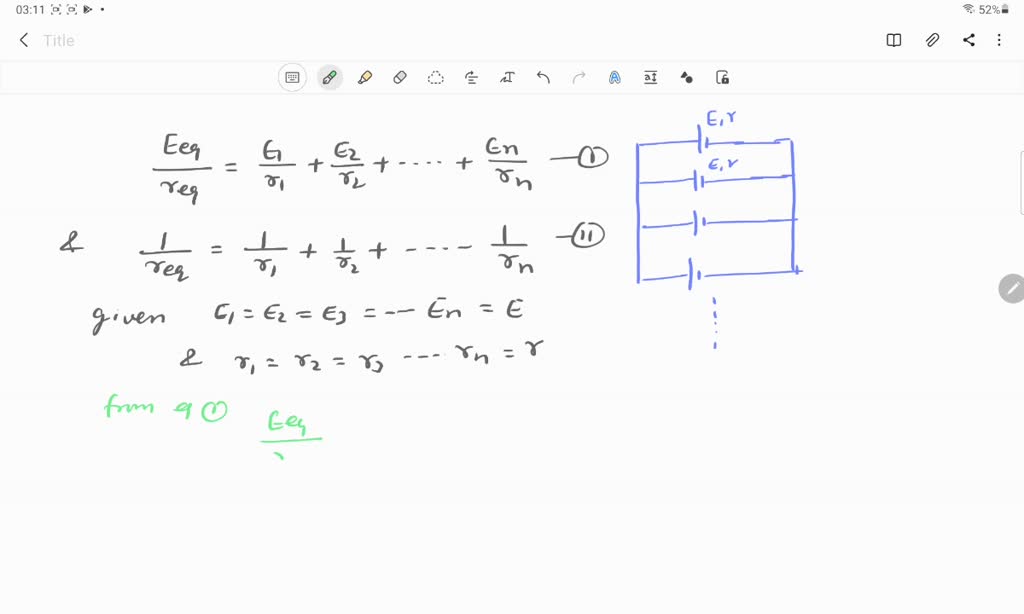 03:11 52%
Title
E,r
Eeq/req = E1/r1 + E2/r2 + ···· + En/rn —(I)
E,r
& 1/req = 1/r1 + 1/r2 + ····- 1/rn —(II)
given E1 = E2 = E3 = -- En = E
& r1 = r2 = r3 ---- rn = r
from q (I) Eeq